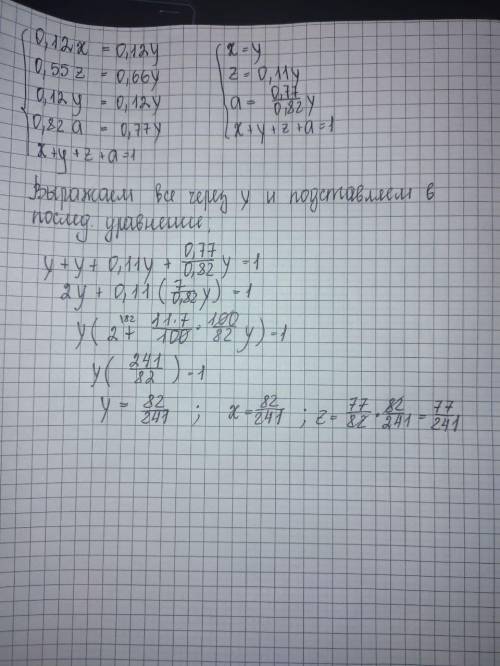 0,12x = 0,12y
0,55z = 0,66y
0,12y = 0,12y
0,82a = 0,77y
x+y+z+a=1
x=y
z=0,11y
a= 0,77/0,82 y
x+y+z+a=1
Выражаем все через y и подставляем в
послед. уравнение;
y+y+0,11y+ 0,77/0,82 y=1
2y+0,11( 7/0,82 y)=1
y( 2+ 11·7/100 · 100/82 y)=1
y( 241/82 )=1
y= 82/241 ; x= 82/241 ; z= 77/82 · 82/241 = 77/241